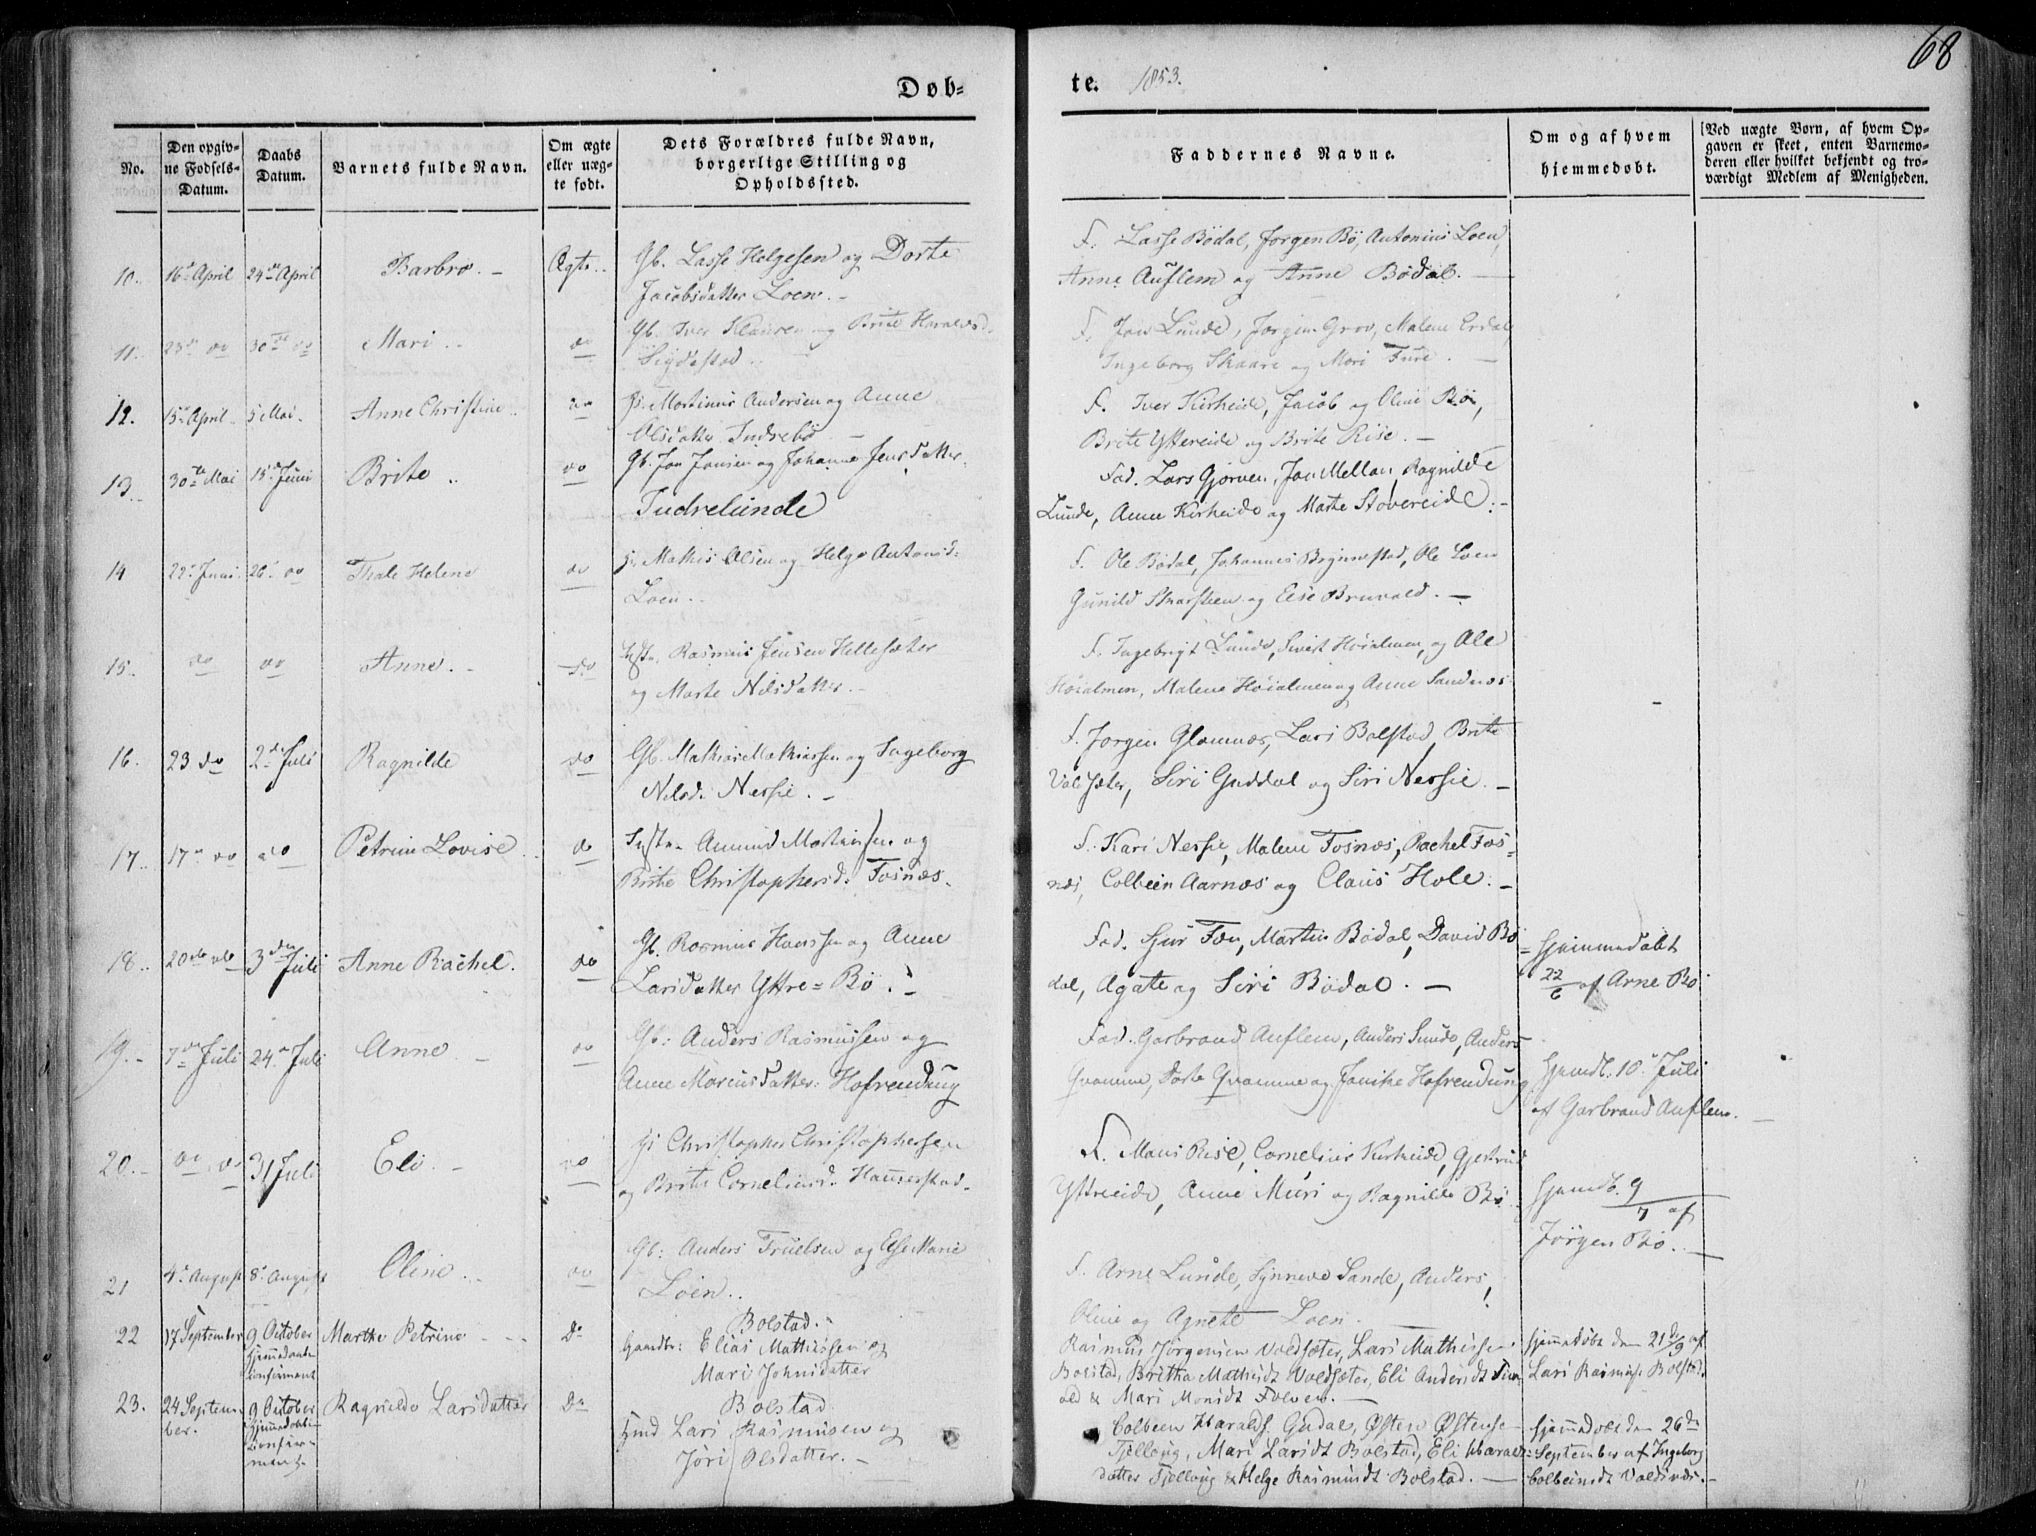 68
Døb-
te. 1853.
No.
Den opgiv-
ne Fødsels-
Datum.
Daabs
Datum.
Barnets fulde Navn.
Om ægte
eller uæg-
te født.
Dets Forældres fulde Navn,
borgerlige Stilling og
Opholdssted.
Faddernes Navne.
Om og af hvem
hjemmedøbt.
Ved uægte Børn, af hvem Op-
gaven er skeet, enten Barnemo-
deren eller hvilket bekjendt og tro-
værdigt Medlem af Menigheden.
10. 16de April 24de April Barbro. Ægte. Gb. Lasse Helgesen og Dorte
Jacobsdatter Loen.
F. Lasse Bødal, Jørgen Bø, Antonius Loen,
Anne Auflem og Anne Bødal.
11. 23de do 30te do Mari do Gb. Iver Klausen og Brite Haraldsd.
F. Jon Lunde, Jørgen Grov, Malene Erdal,
Ingeborg Skaare og Mari Fure.
12. 15de April 5 Mai Anne Christine do Martinus Andersen og Anne
Olsdatter Indrebø
F. Iver Kirkeide, Jacob og Oline Bø,
Brite Yttereide og Brite Rise.
13. 30te Mai 15de Juni Brite do Gb. Jon Jonsen og Johanne Jensdatter
Indrelunde
Fad. Lars Gjørven, Jon Mellan, Ragnilde
Lunde, Anne Kirkeide og Marte Støvereide.
14 22de Juni 26 do Thale Helene do Mathis Olsen og Helge Antonsd:
Loen.
F. Ole Bødal, Johannes Brynnestad, Ole Loen
Gunild Skarsteen og Else Bruvold.
15. do do Anne. do Inste. Rasmus Jensen Hellesæter
og Marte Nilsdatter.
F. Ingebrigt Lunde, Sivert Høialmen, og Ole
Høialmen, Malene Høialmen og Anne Sandnes
16. 23 do 2de Juli Ragnilde do Gb. Mathias Mathiassen og Ingeborg
Nilsd. Nessie.
F. Jørgen Glomnæs, Lars Bolstad, Brite
Voldsæter, Siri Guddal og Siri Nessie.
17. 17de do do Petrine Lovise do Inste. Amund Martinsen og
Brite Christophersd. Fosnæs.
F. Kari Nessie, Malene Fosnæs, Rachel Fos-
næs, Colbein Aarnæs og Claus Hole.
18. 20de do 3die Juli Anne Rachel. do Gb. Rasmus Hanssen og Anne
Larsdatter Yttre-Bø.
Fad. Sjur Fæn, Martin Bødal, David Bø-
dal, Agate og Siri Bødal.
Hjemmedøbt
22/6 af Arne Bø
19. 7de Juli 24de Juli Anne do Gb: Anders Rasmussen og
Anne Mariusdatter: Hofrendung
Fad. Garbrand Auflem, Anders Sunde, Anders
Qvamme, Dorte Qvamme og Jonike Hofrendung
Hjemdt. 10de Juli
af Garbrand Auflem.
20. do do 31 Juli Eli do Christopher Christophersen
og Brite Corneliusd. Haugestad.
F. Maus Rise, Cornelius Kirkeide, Gjertrud
Yttreeide, Anne Muri og Ragnilde Bø
Hjemdb. 9/7 af
Jørgen Bø.
21 4de August 8de August Oline do Gb: Anders Truelsen og Else Marie
Loen.
F. Arne Lunde, Synneve Sande, Anders,
Oline og Agnete Loen.
22 17 September 9 October
Hjemmedaaben
confirmeret
Marthe Petrine Do Bolstad.
Gaardbr: Elias Mathiesen og
Mari Johnsdatter
Rasmus Jørgensen Voldsæter, Lars Mathiesen
Bolstad, Britha Mathiedt Voldsæter, Eli Andersdt
& Mari Monsdt Folven.
Hjemmedøbt den 21de/9 af
Lars Rasmuss. Bolstad.
23. 24 Septem-
ber. 9 October
Hjemmedøbt
confir-
meret
Ragnilde Larsdatter Do Bolstad
Hmd Lars Rasmusen og
Jøri Olsdatter.
Colbeen Haralds. Gudal, Østen Østense
Tjelloug, Mari Larsdt Bolstad, Eli Haralds-
datter Tjelloug & Helge Rasmusdt Bolstad.
Hjemmedøbt den 26de
September af Ingeborg
Colbeinsdt Voldsnæs.